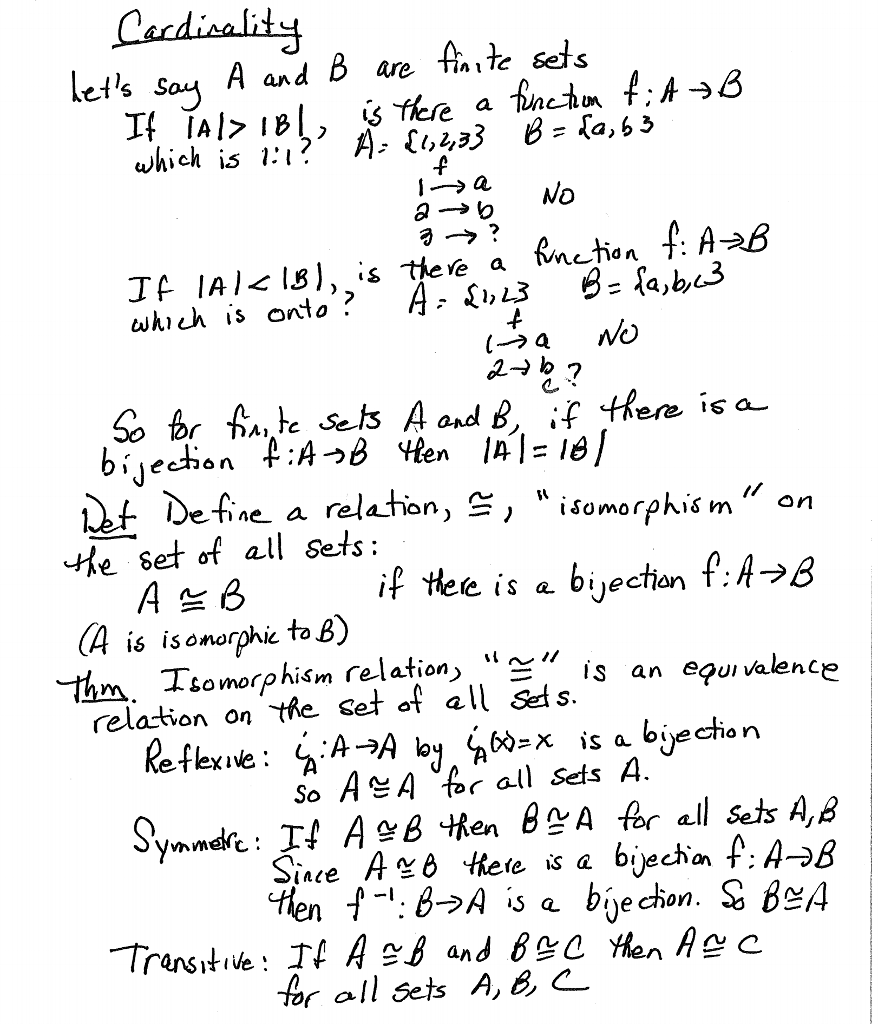 Cardinality
Let's say A and B are finite sets
If |A| > |B|, is there a function f: A → B
which is 1:1? A = {1,2,3} B = {a,b}
f
1 → a
2 → b NO
3 → ?
If |A| < |B|, is there a function f: A → B
which is onto? A = {1,2} B = {a,b,c}
f
1 → a NO
2 → b
c ?
So for finite sets A and B, if there is a
bijection f: A → B then |A| = |B|
Def Define a relation, ≅, "isomorphism" on
the set of all sets:
A ≅ B if there is a bijection f: A → B
(A is isomorphic to B)
Thm. Isomorphism relation, "≅" is an equivalence
relation on the set of all sets.
Reflexive: i_A: A → A by i_A(x) = x is a bijection
so A ≅ A for all sets A.
Symmetric: If A ≅ B then B ≅ A for all sets A, B
Since A ≅ B there is a bijection f: A → B
then f⁻¹: B → A is a bijection. So B ≅ A
Transitive: If A ≅ B and B ≅ C then A ≅ C
for all sets A, B, C